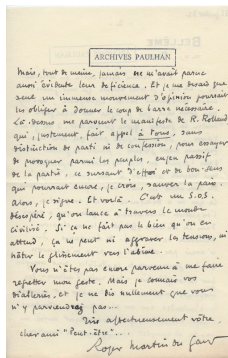 ARCHIVES PAULHAN
Mais, tout de même, jamais ne m'avait paru
aussi évidente leur déficience. Et je me disais que
seul un immense mouvement d'opinion pourrait
les obliger à donner le coup de barre nécessaire.
Là-dessus me parvient le manifeste de R. Rolland
qui, justement, fait appel à tous, sans
distinction de parti ni de confession, pour essayer
de provoquer parmi les peuples, enjeu passif
de la partie, ce sursaut d'effroi et de bon-sens
qui pourrait encore, je crois, sauver la paix.
Alors, je signe. Et voilà. C'est un S.O.S.
désespéré, qu'on lance à travers le monde
civilisé. Si ça ne fait pas le bien qu'on en
attend, ça ne peut ni aggraver les tensions, ni
hâter le glissement vers l'abîme.
Vous n'êtes pas encore parvenu à me faire
regretter mon geste. Mais je connais vos
diableries, et je ne dis nullement que vous
n'y parviendrez pas...
Très affectueusement vôtre,
cher ami "Peut-être"...
Roger Martin du Gard